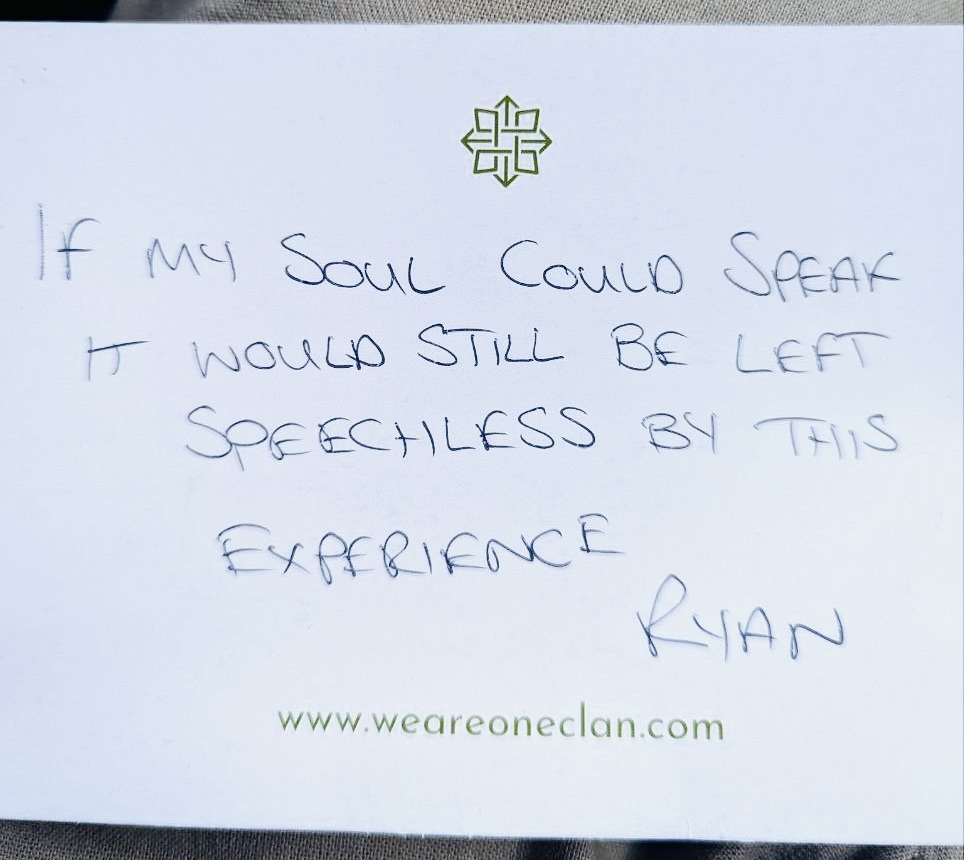 IF MY SOUL COULD SPEAK
IT WOULD STILL BE LEFT
SPEECHLESS BY THIS
EXPERIENCE
RYAN
www.weareoneclan.com